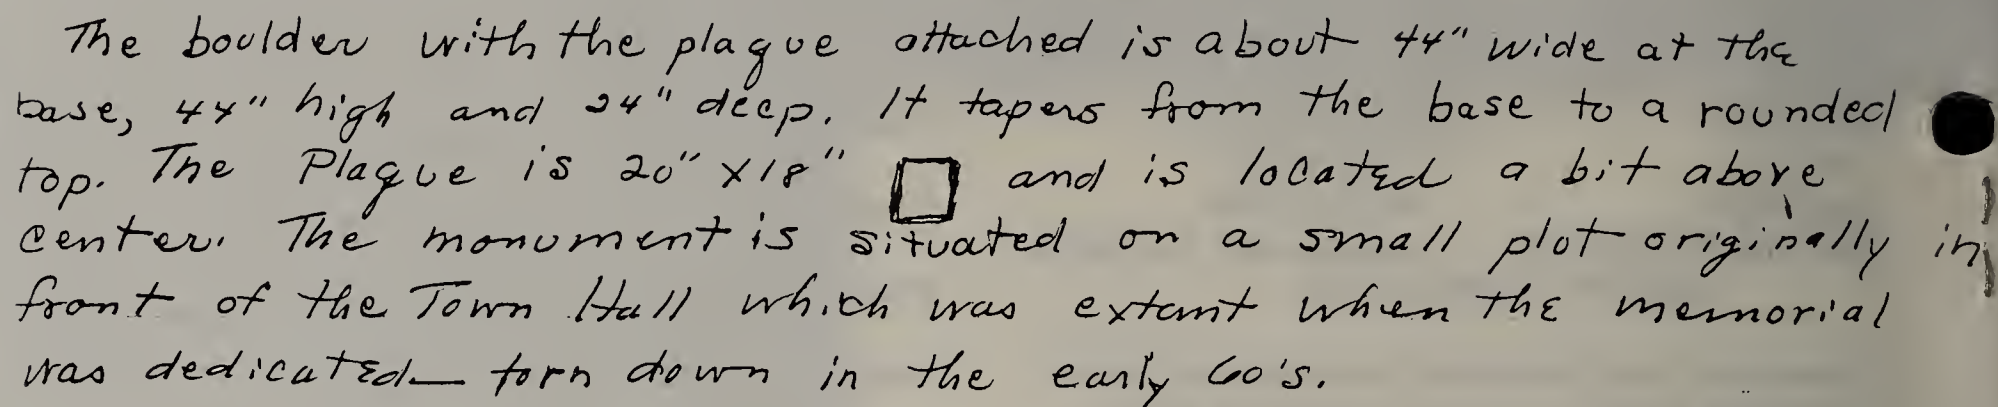 The boulder with the plaque attached is about 44" wide at the
base, 44" high and 24" deep. It tapers from the base to a rounded
top. The Plaque is 20" x 18" and is located a bit above
center. The monument is situated on a small plot originally in
front of the Town Hall which was extant when the memorial
was dedicated — torn down in the early 60's.